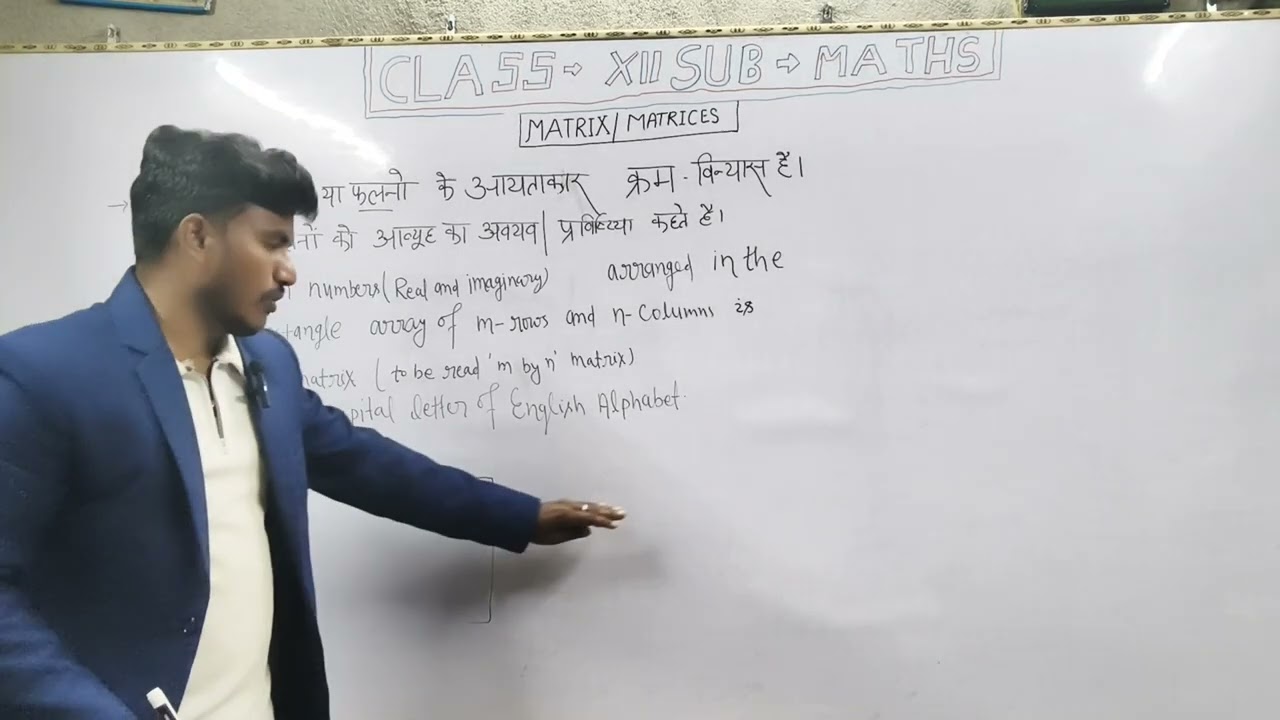 CLASS → XII SUB → MATHS
MATRIX/ MATRICES
→ या फलनो के आयताकार क्रम-विन्यास हैं।
को आव्यूह का अवयव| कहते हैं।
numbers (Real and imaginary) arranged in the
tangle array of m-rows and n-Columns is
matrix ( to be read 'm by n' matrix)
pital letter of English Alphabet.